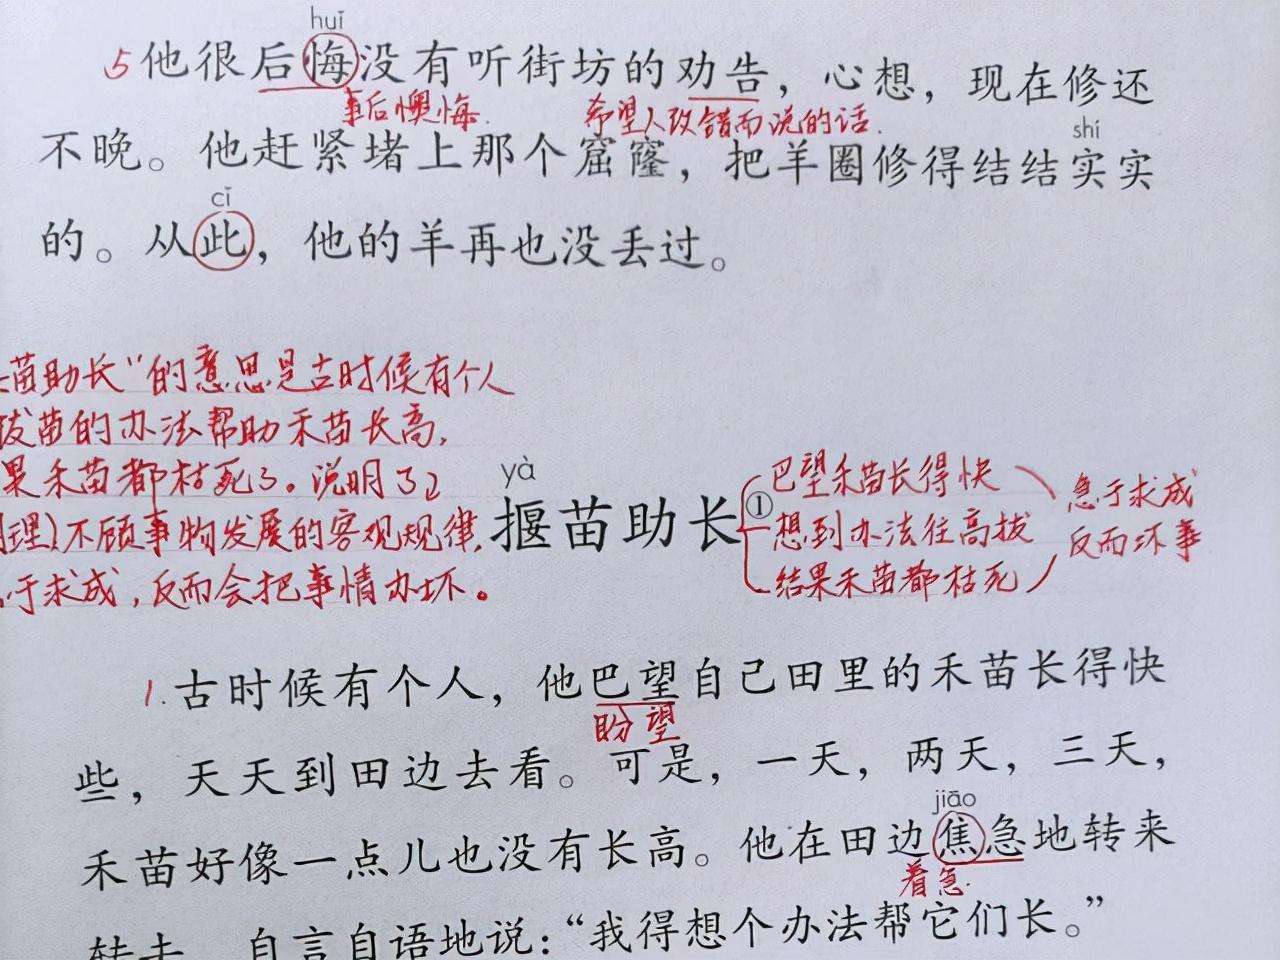 huǐ
5 他很后悔没有听街坊的劝告，心想，现在修还
事后懊悔. 希望人改错而说的话.
shi
不晚。他赶紧堵上那个窟窿，把羊圈修得结结实实
cǐ
的。从此，他的羊再也没丢过。
苗助长”的意思是古时候有个人
拔苗的办法帮助禾苗长高,
果禾苗都枯死了。说明了
理)不顾事物发展的客观规律,
于求成,反而会把事情办坏。
yà
揠苗助长①
巴望禾苗长得快
想到办法往高拔
结果禾苗都枯死
急于求成
反而坏事
1. 古时候有个人，他巴望自己田里的禾苗长得快
盼望
些，天天到田边去看。可是，一天，两天，三天，
jiāo
禾苗好像一点儿也没有长高。他在田边焦急地转来
着急.
转去，自言自语地说：“我得想个办法帮它们长。”